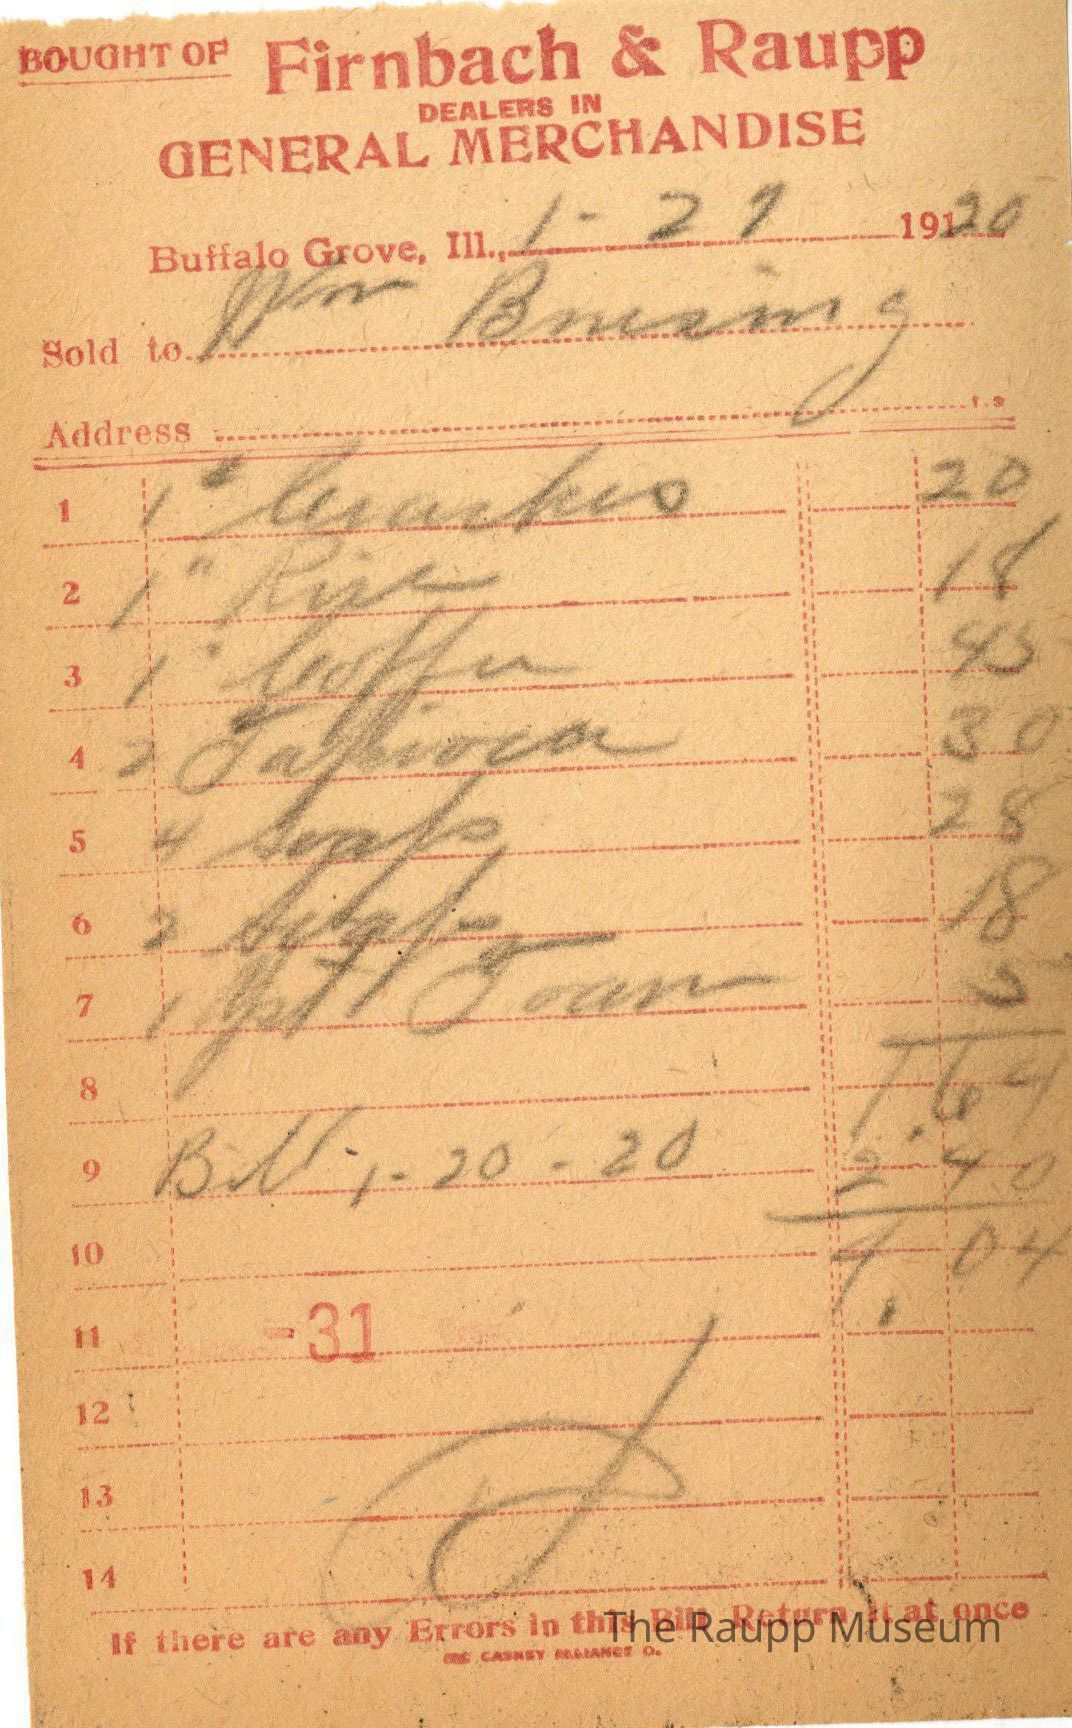 BOUGHT OF Firnbach & Raupp
DEALERS IN
GENERAL MERCHANDISE
Buffalo Grove, Ill., 1-27 19120
Sold to Wm
Address
1 1# Crackers 20
2 1" Rice 18
3 1" Coffee 45
4 2 Tapioca 30
5 4 Soap 28
6 2 18
7 1 5
8 1.64
9 Bill 1-20-20 2 40
10 4.04
11 -31
12
13
14
If there are any Errors in this Bill, Return it at once
The Raupp Museum